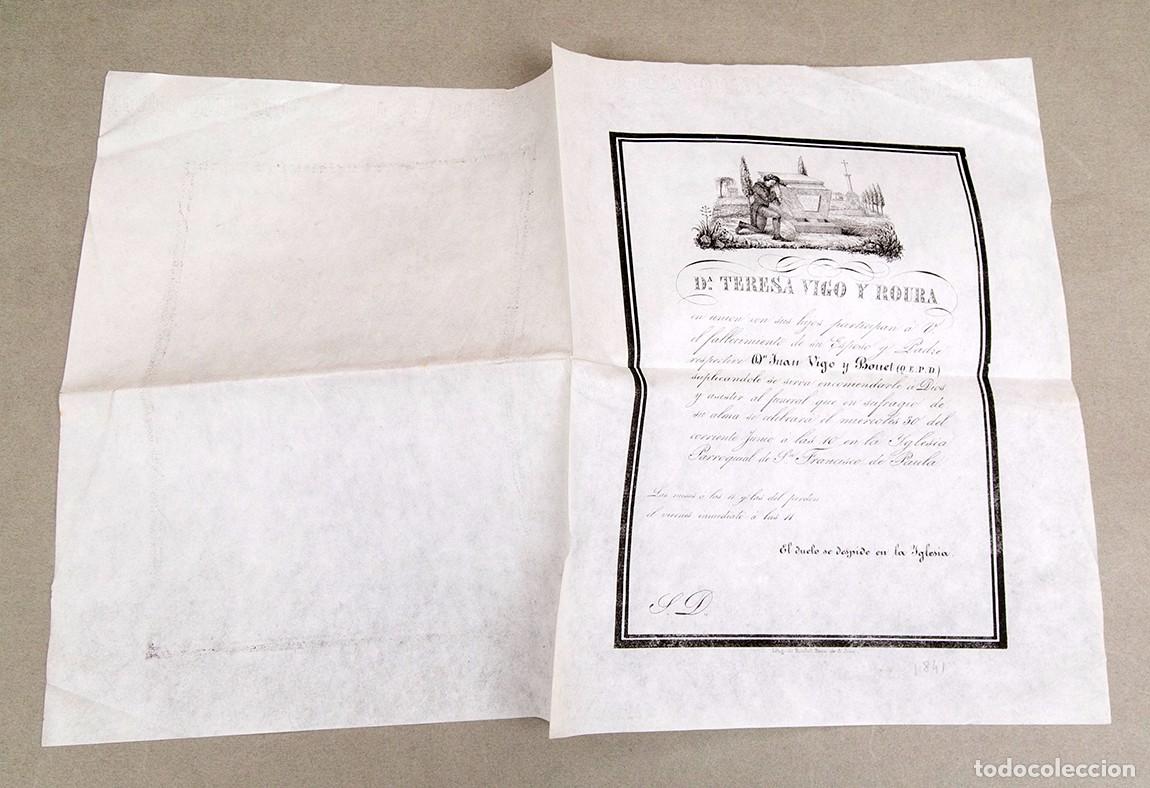 D.ª TERESA VIGO Y ROURA
en union con sus hijos participan á V.
el fallecimiento de su Esposo y Padre
respective Dn Juan Vigo y Bonet (Q.E.P.D.)
suplicandole se sirva encomendarle á Dios
y asistir al funeral que en sufragio de
su alma se celebrará el miercoles 30 del
corriente Junio a las 10 en la Iglesia
Parroquial de Sn Francisco de Paula
Las misas a las 11 y las del perdon
el viernes inmediato á las 11
El duelo se despide en la Iglesia.
S. D.
Litog. de
1841
todocoleccion